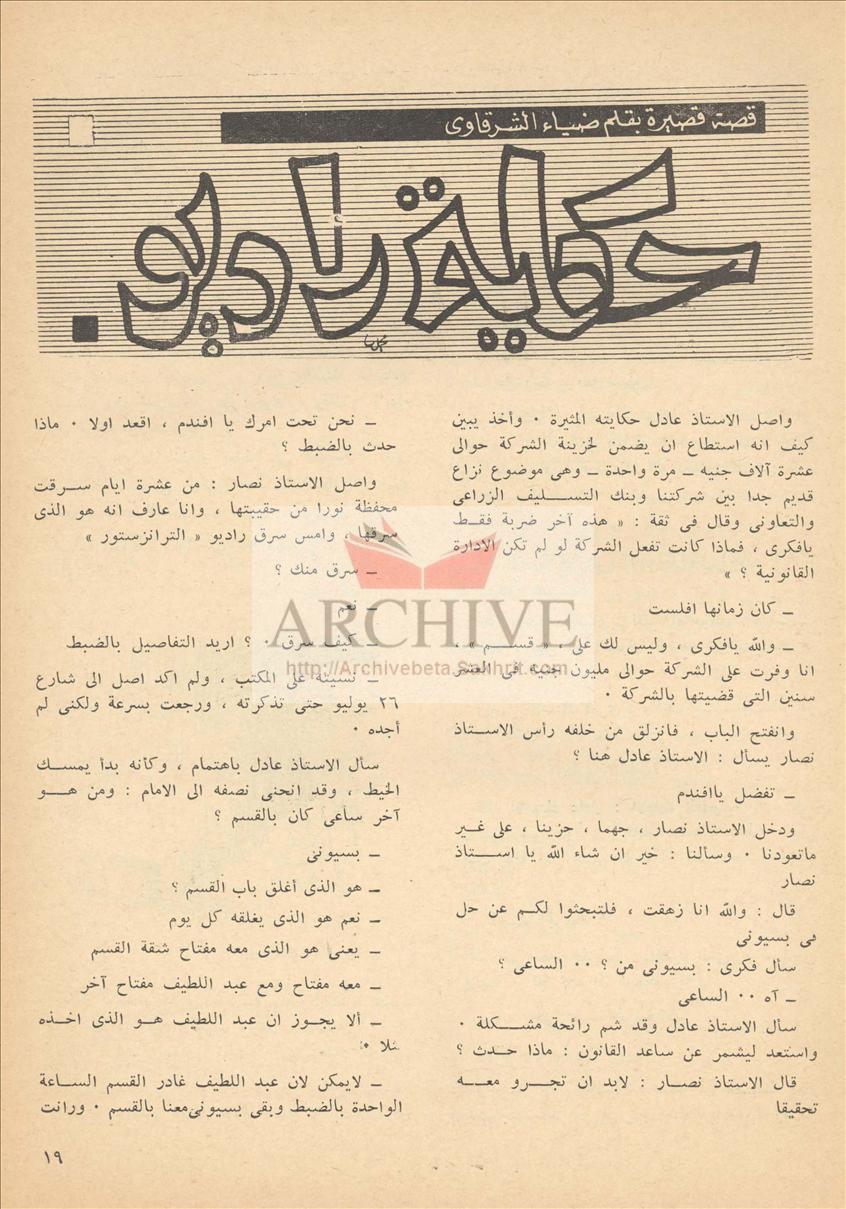 قصة قصيرة بقلم ضياء الشرقاوى
حكاية راديو
واصل الاستاذ عادل حكايته المثيرة ٠ وأخذ يبين
كيف انه استطاع ان يضمن لخزينة الشركة حوالى
عشرة آلاف جنيه ــ مرة واحدة ــ وهى موضوع نزاع
قديم جدا بين شركتنا وبنك التسـليف الزراعى
والتعاونى وقال فى ثقة : « هذه آخر ضربة فقـط
يافكرى ، فماذا كانت تفعل الشركة لو لم تكن الادارة
القانونية ؟ »
ــ كان زمانها افلست
ــ والله يافكرى ، وليس لك على ، « قسـم » ،
انا وفرت على الشركة حوالى مليون جنيه فى العشر
سنين التى قضيتها بالشركة ٠
وانفتح الباب ، فانزلق من خلفه رأس الاسـتاذ
نصار يسأل : الاستاذ عادل هنا ؟
ــ تفضل ياافندم
ودخل الاستاذ نصار ، جهما ، حزينا ، على غـير
ماتعودنا ٠ وسألنا : خير ان شاء الله يا اسـتاذ
نصار
قال : والله انا زهقت ، فلتبحثوا لكـم عن حل
فى بسيونى
سأل فكرى : بسيونى من ؟ ٠٠ الساعى ؟
ــ آه ٠٠ الساعى
سأل الاستاذ عادل وقد شم رائحة مشـكلة ٠
واستعد ليشمر عن ساعد القانون : ماذا حـدث ؟
قال الاستاذ نصـار : لابد ان تجـرو معـه
تحقيقا
ــ نحن تحت امرك يا افندم ، اقعد اولا ٠ ماذا
حدث بالضبط ؟
واصل الاستاذ نصار : من عشرة ايام سـرقت
محفظة نورا من حقيبتها ، وانا عارف انه هو الذى
سرقها ، وامس سرق راديو « الترانزستور »
ــ سرق منك ؟
ــ نعم
ــ كيف سرق ٠ ؟ اريد التفاصيل بالضبط
ــ نسيته على المكتب ، ولم اكد اصل الى شارع
٢٦ يوليو حتى تذكرته ، ورجعت بسرعة ولكنى لم
أجده ٠
سأل الاستاذ عادل باهتمام ، وكأنه بدأ يمسـك
الخيط ، وقد انحنى نصفه الى الامام : ومن هـو
آخر ساعى كان بالقسم ؟
ــ بسيونى
ــ هو الذى أغلق باب القسم ؟
ــ نعم هو الذى يغلقه كل يوم
ــ يعنى هو الذى معه مفتاح شقة القسم
ــ معه مفتاح ومع عبد اللطيف مفتاح آخر
ــ ألا يجـوز ان عبد اللطيف هـو الذى اخـذه
مثلا ٠
ــ لايمكن لان عبد اللطيف غادر القسم السـاعة
الواحدة بالضبط وبقى بسيونى معنا بالقسم ٠ ورانت
١٩
ARCHIVE
http://Archivebeta.Sakhrit.com